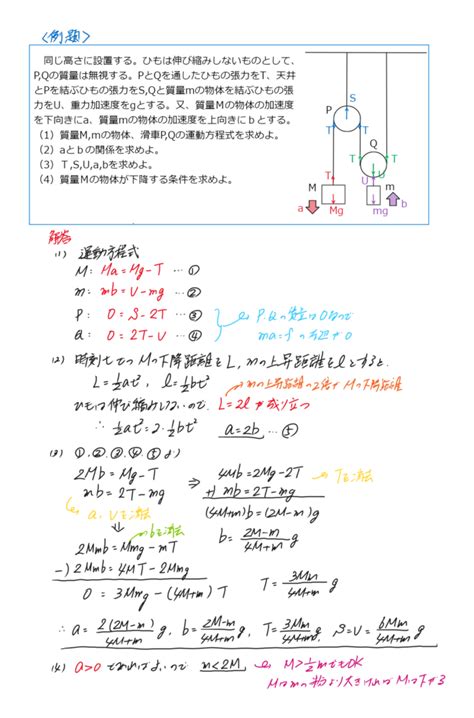 <例題>
同じ高さに設置する。ひもは伸び縮みしないものとして、
P,Qの質量は無視する。PとQを通したひもの張力をT、天井
とPを結ぶひもの張力をS,Qと質量mの物体を結ぶひもの張
力をU、重力加速度をgとする。又、質量Mの物体の加速度
を下向きにa、質量mの物体の加速度を上向きにbとする。
(1)質量M,mの物体、滑車P,Qの運動方程式を求めよ。
(2)aとbの関係を求めよ。
(3)T,S,U,a,bを求めよ。
(4)質量Mの物体が下降する条件を求めよ。
S
P
T
T
Q
T
T
T
U
U
M
m
a
Mg
mg
b
解答
(1) 運動方程式
M: Ma=Mg-T …①
m: mb=U-mg …②
P: 0=S-2T …③
Q: 0=2T-U …④
P.Qの質量は0なので
ma=fの左辺が0
(2) 時刻tでのMの下降距離をL, mの上昇距離をlとすると、
L=½at², l=½bt²
mの上昇距離の2倍がMの下降距離
ひもは伸び縮みしないので、L=2lが成り立つ
∴ ½at²=2・½bt² a=2b …⑤
(3) ①,②,③,④,⑤より
2Mb=Mg-T
mb=2T-mg
a,Uを消去
⇒ 4Mb=2Mg-2T
+) mb=2T-mg
Tを消去
(4M+m)b=(2M-m)g
b=(2M-m)/(4M+m) g
bを消去
2Mmb=Mmg-mT
-) 2Mmb=4MT-2Mmg
0=3Mmg-(4M+m)T
T=3Mm/(4M+m) g
∴ a=2(2M-m)/(4M+m) g, b=(2M-m)/(4M+m) g, T=3Mm/(4M+m) g, S=U=6Mm/(4M+m) g
(4) a>0であればよいので m<2M
M>½mでもOK